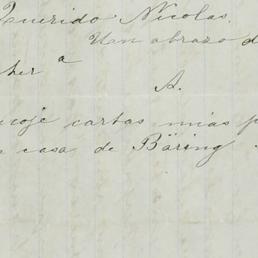 Querido Nicolas.
Un abrazo d
her a
A.
coje cartas mias p
casa de Baring